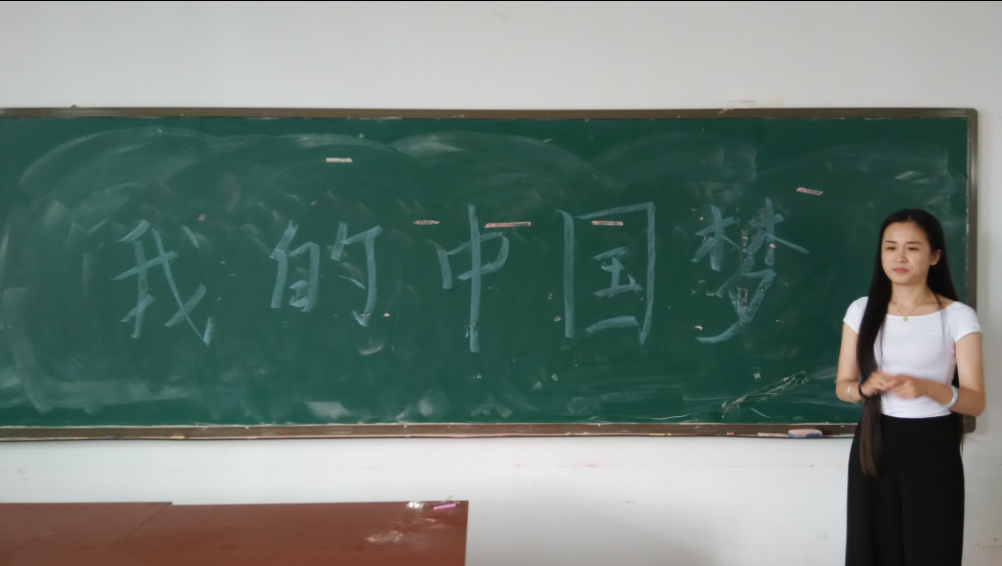 我的中国梦